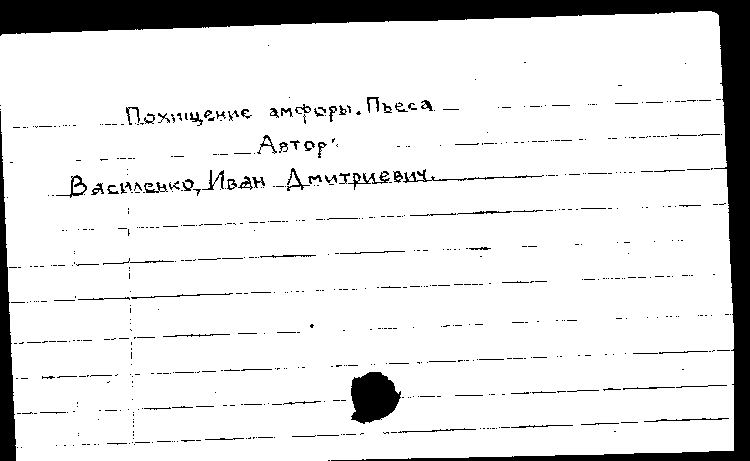 Похищение амфоры. Пьеса
Автор:
Василенко, Иван Дмитриевич.